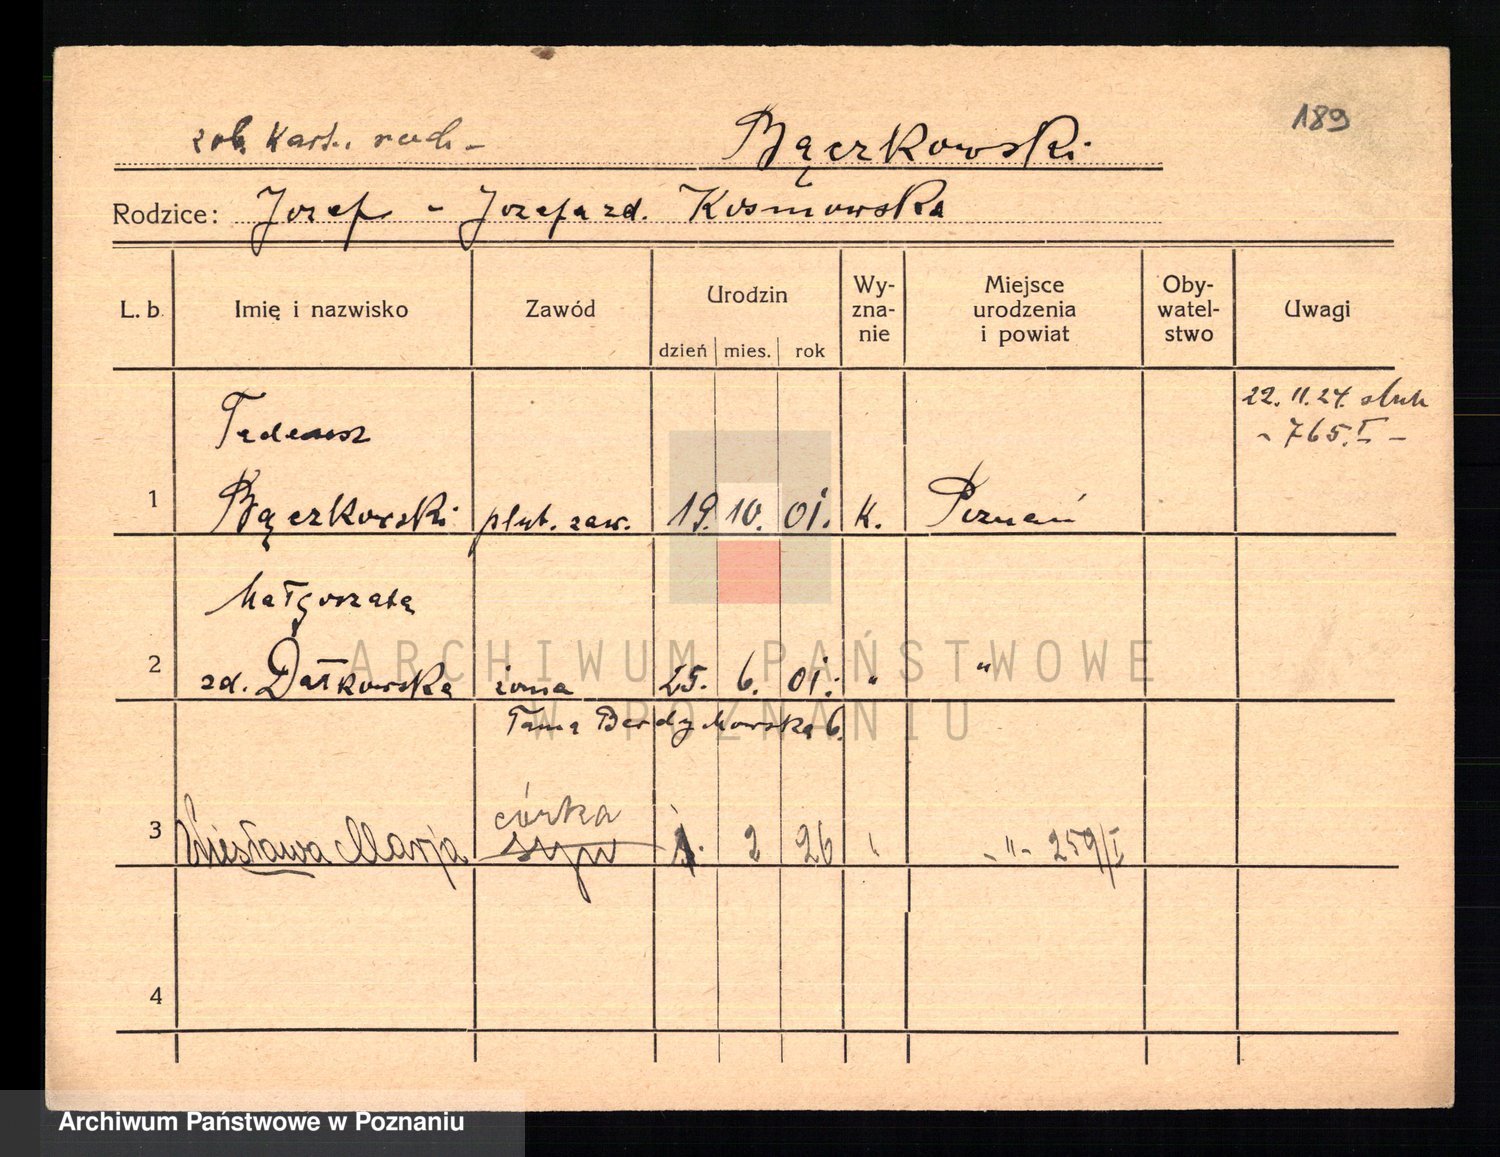 189
zob. Kart. rodz. - Bączkowski
Rodzice: Jozef - Jozefa zd. Kosmowska
L. b. Imię i nazwisko Zawód Urodzin dzień mies. rok Wy-zna-nie Miejsce urodzenia i powiat Oby-watel-stwo Uwagi
22. 11. 24. ślub
- 765. I -
Tadeusz
1 Bączkowski plut. zaw. 19. 10. 01. K. Poznań
Małgorzata
2 zd. Datkowska żona 25. 6. 01. " "
Tama Berdychowska 6.
córka
3 Wiesława Marja syn 1. 2 26 " - " - 259/I
4
ARCHIWUM PAŃSTWOWE
W POZNANIU
Archiwum Państwowe w Poznaniu